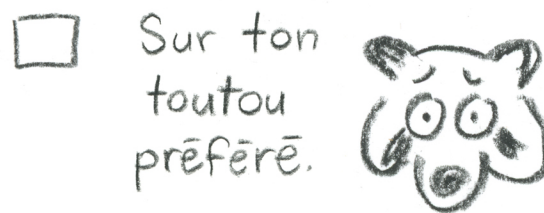 Sur ton
toutou
préféré.